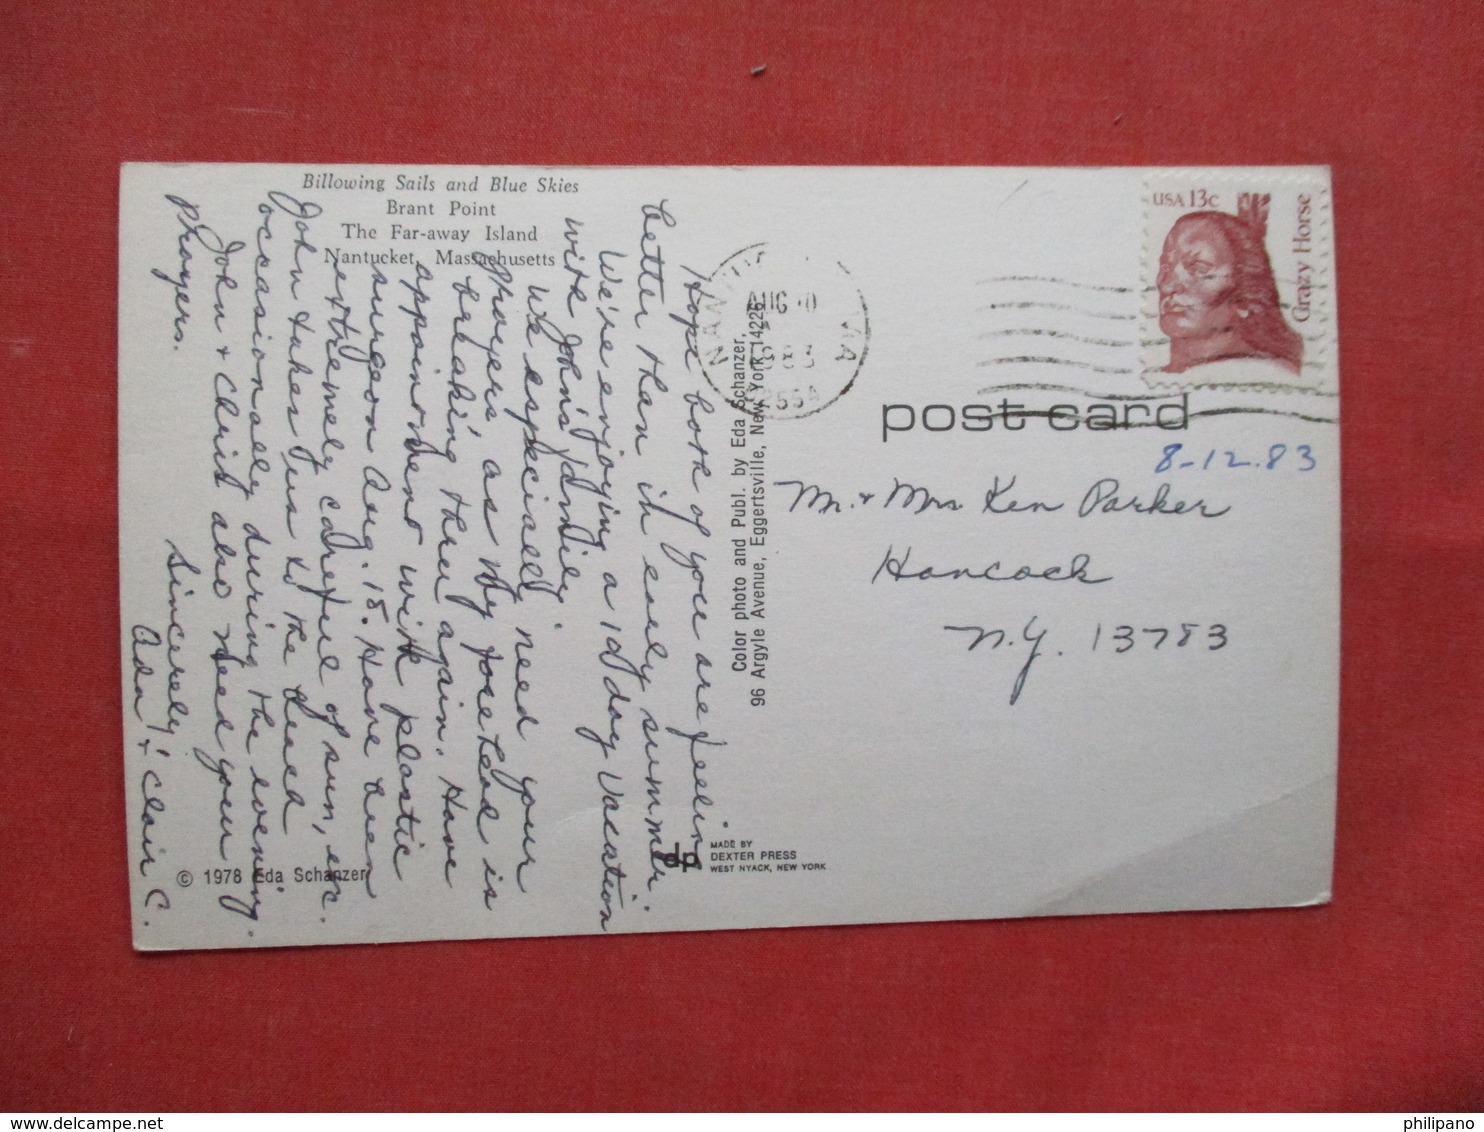 Billowing Sails and Blue Skies
Brant Point
The Far-away Island
Nantucket, Massachusetts
Hope both of you are feeling
better than in early summer.
We're enjoying a 10 day Vacation
with John's family.
We especially need your
prayers as my forehead is
breaking thru again. Have
appointment with plastic
surgeon Aug. 18. Have been
extremely careful of sun, etc.
John takes us to the beach
occasionally during the evening.
John & Chris also need your
prayers.
Sincerely,
Ada & Clair C.
© 1978 Eda Schanzer
Color photo and Publ. by Eda Schanzer,
96 Argyle Avenue, Eggertsville, New York 14226
dp
MADE BY
DEXTER PRESS
WEST NYACK, NEW YORK
AUG
1983
MA
USA 13c
Crazy Horse
post card
8-12-83
Mr. & Mrs Ken Parker
Hancock
N.Y. 13783
philipano